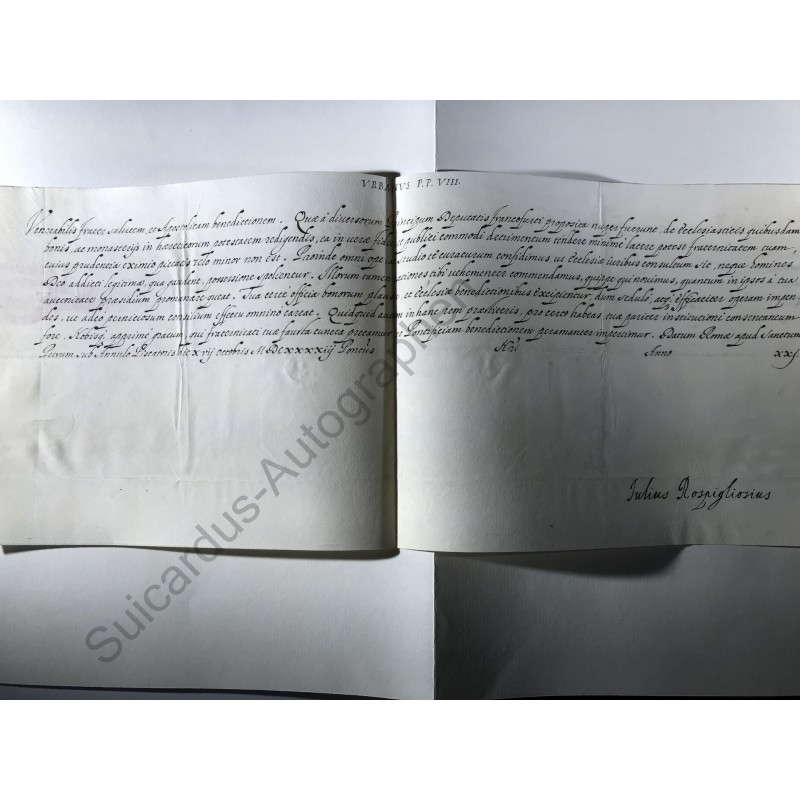 VRBANVS P.P. VIII.
Venerabilis frater salutem, et Apostolicam benedictionem. Quæ à diversorum Principum Deputatis francofurti proposita nuper fuerunt, de Ecclesiasticis quibusdam
bonis, ac monasterijs in hæreticorum potestatem redigendis, ea in veræ fidei, et publici commodi detrimentum tendere minimè latere potest fraternitatem tuam,
cuius prudentia eximio pietatis zelo minor non est. Proinde omni ope a studio et curaturum confidimus, ut Ecclesiæ iuribus consultum sit, neque homines
Deo addicti legitima, qua gaudent, possessione spolientur. Illorum tamen rationes tibi vehementer commendamus, quippe qui novimus, quantum in ipsos à tua
auctoritate præsidium promanare queat. Tua certè officia bonorum plausu, et Ecclesiæ benedictionibus excipientur, dum sedulò, atq. efficaciter operam impen
des, ut adeo perniciosum consilium effectu omnino careat. Quidquid autem in hanc rem præstiteris, pro certo habeas tuæ pariter institutioni consentaneum
fore, Nobisq. apprimè gratum, qui fraternitati tuæ fausta cuncta precamur, Pontificiam benedictionem peramanter impertimur. Datum Romæ apud Sanctum
Petrum sub Annulo Piscatoris die xvij octobris MDCXXXXIIJ Pontus Nri Anno XXJ.
Iulius Rospigliosius
Suicardus-Autographen